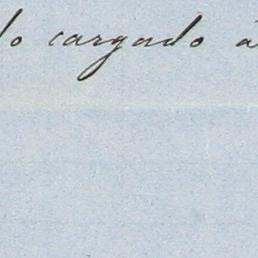 do cargado á